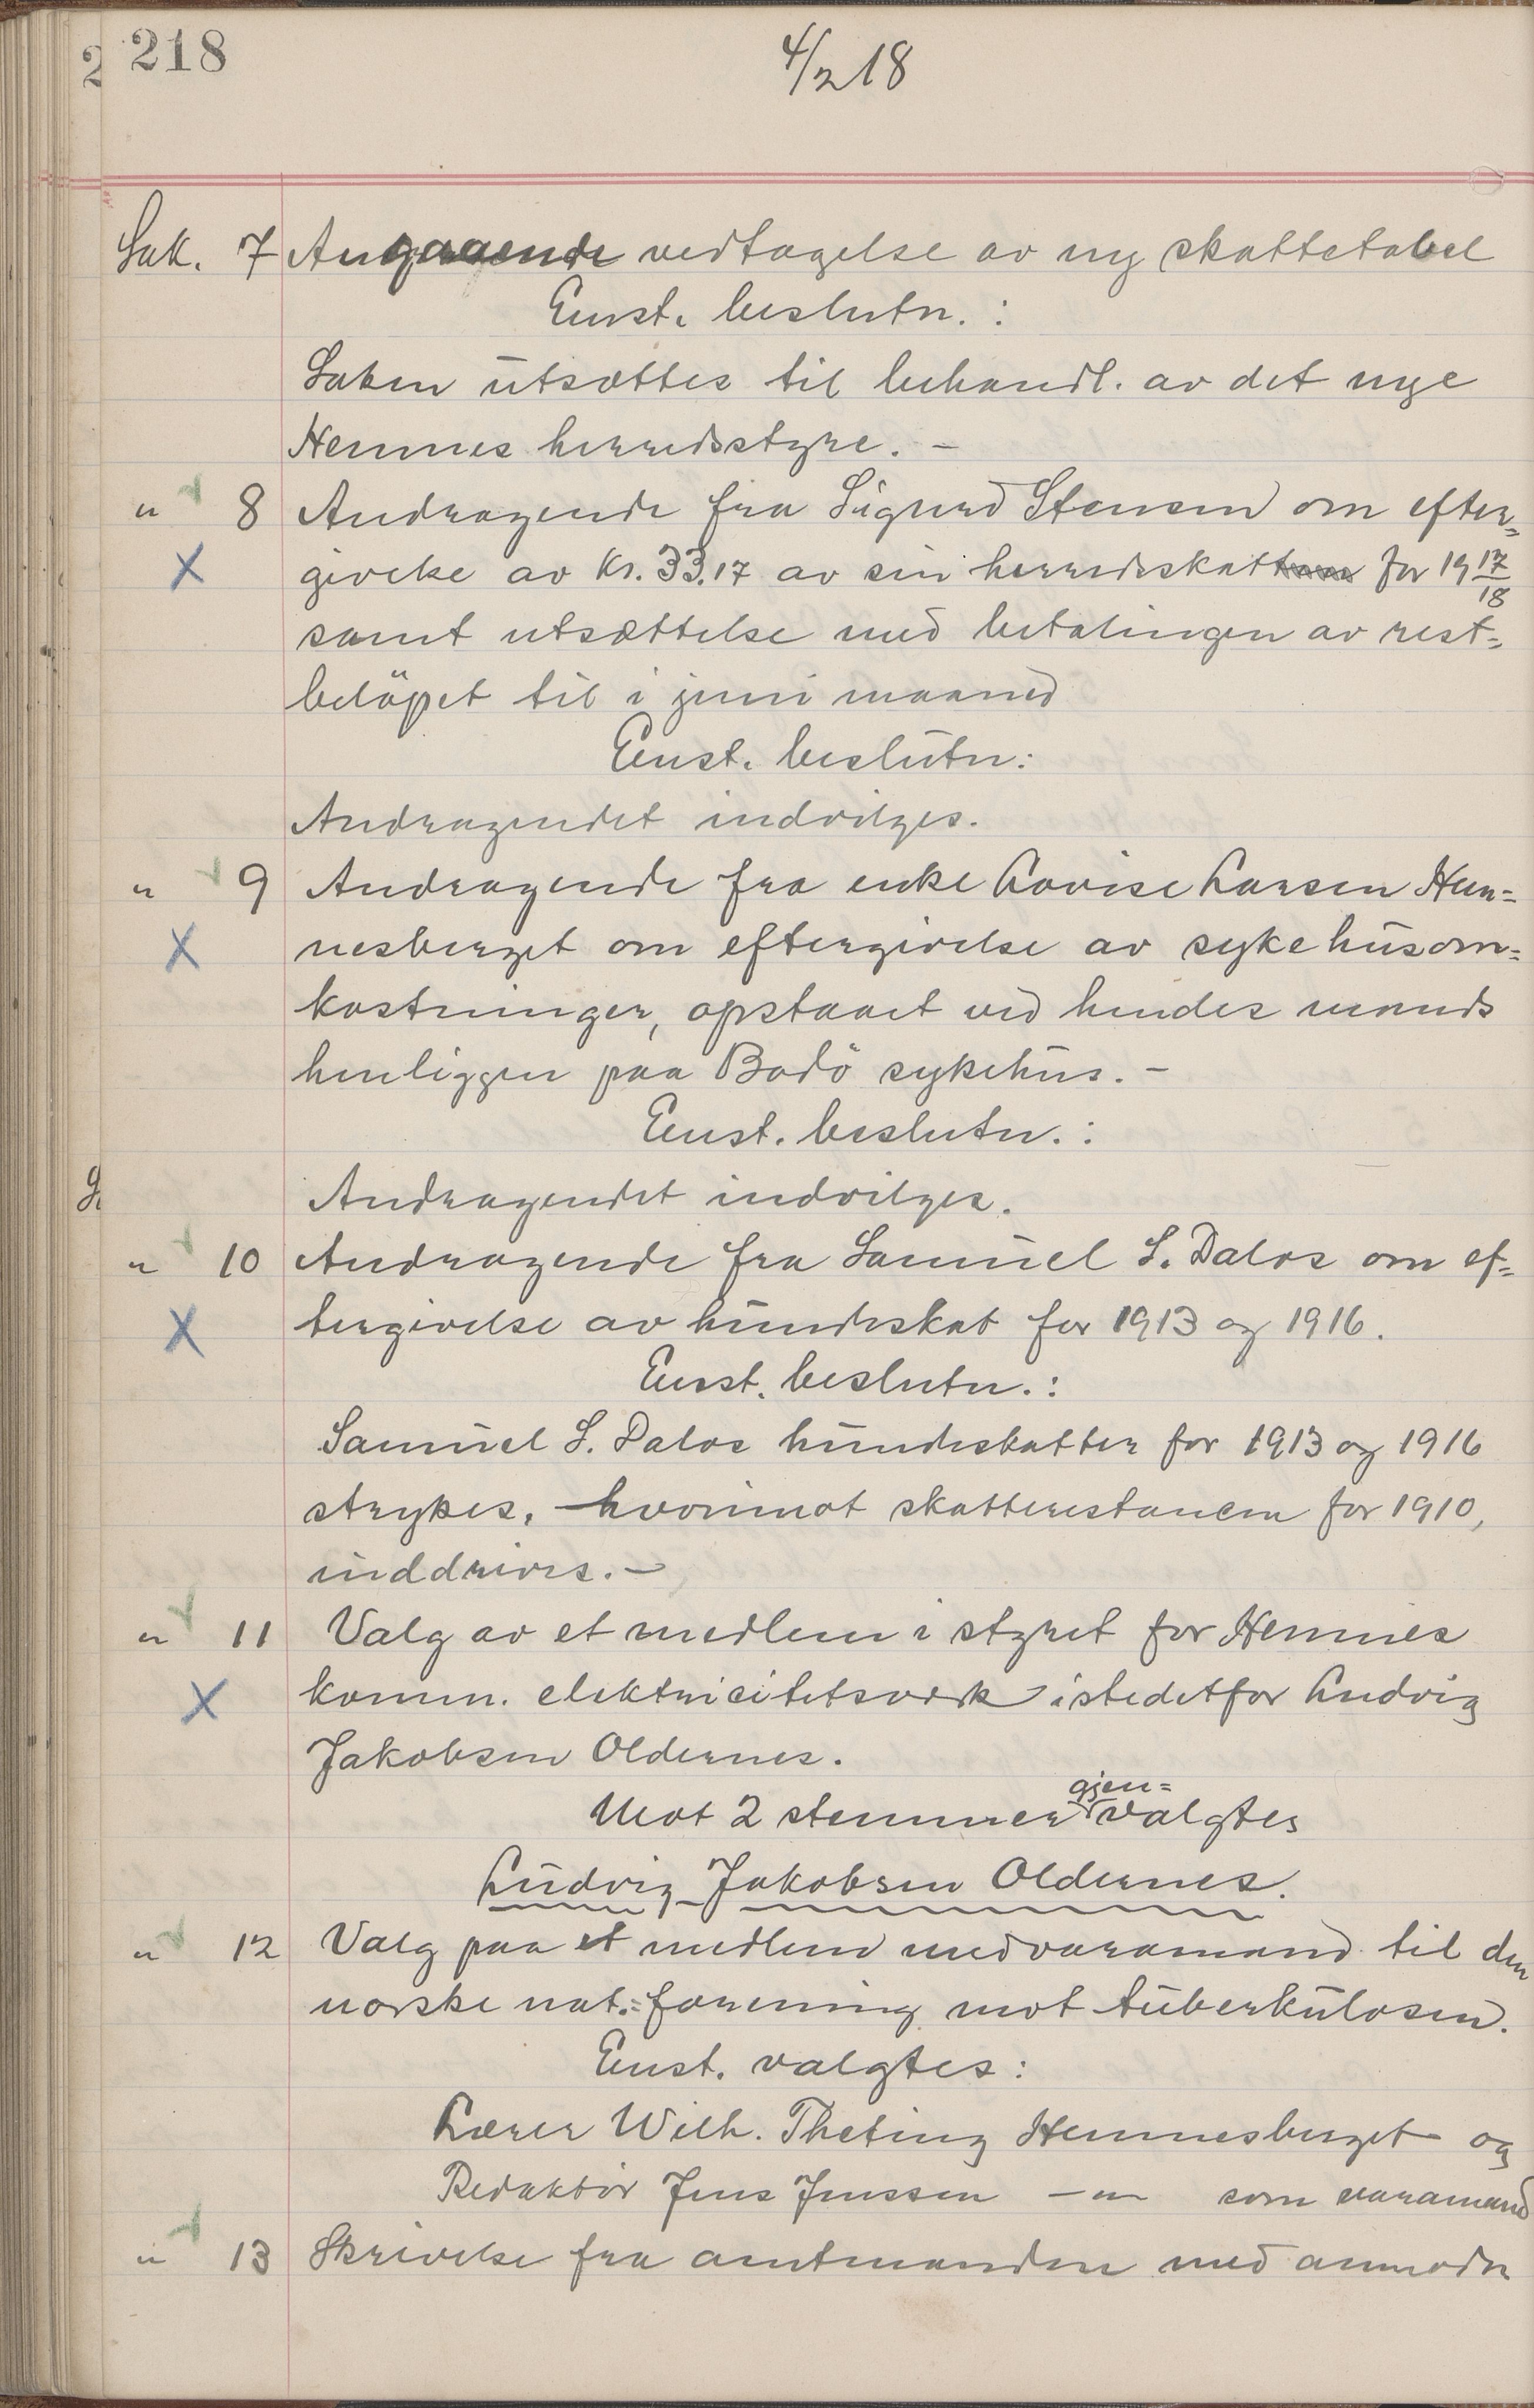 218
4/2 18
Sak. 7 Angaaende vedtagelse av ny skattetabel
Enst. beslutn. :
Saken utsættes til behandl. av det nye
Hemnes herredsstyre. –
" 8 Andragende fra Sigurd Stensen om efter=
givelse av Kr. 33.17 av sin herredsskat for 19 17/18
samt utsættelse med betalingen av rest=
beløpet til i juni maaned
Enst. beslutn:
Andragendet indvilges.
" 9 Andragende fra enke Lovise Larsen Hem=
nesberget om eftergivelse av sykehusom=
kostninger, opstaaet ved hendes mands
henliggen paa Bodö sykehus. –
Enst. beslutn. :
Andragendet indvilges.
" 10 Andragende fra Samuel S. Dalos om ef=
tergivelse av hundeskat for 1913 og 1916.
Enst. beslutn. :
Samuel S. Dalos hundeskatter for 1913 og 1916
strykes, – hvorimot skatterestancen for 1910,
inddrives. –
" 11 Valg av et medlem i styret for Hemnes
komm. elektricitetsverk istedetfor Ludvig
Jakobsen Oldernes.
Mot 2 stemmer gjen=valgtes
Ludvig Jakobsen Oldernes.
" 12 Valg paa et medlem med varamand til den
norske nat.=forening mot tuberkulosen.
Enst. valgtes:
Lærer Wilh. Theting Hemnesberget og
Redaktör Jens Jenssen –"– som varamand
" 13 Skrivelse fra amtmanden med anmodn